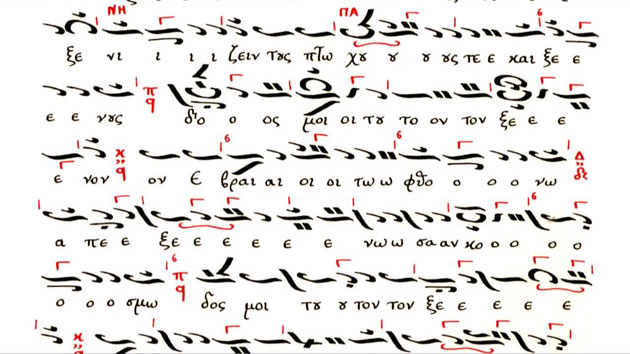 ΝΗ ΠΑ
ξε νι ι ι ι ζειν τȣς πτω χȣ ȣ ȣ ȣς τε ε και ξε ε
ε ε νȣς δο ο ος μοι οι τȣ το ον τον ξε ε ε
ε νον ον Ε βραι αι οι οι τω ω φθο ο ο ο νω
α πε ε ξε ε ε ε ε ε νω ω σα αν κο ο ο ο ο
ο ο ο σμω δος μοι τȣ ȣ τον τον ξε ε ε ε ε